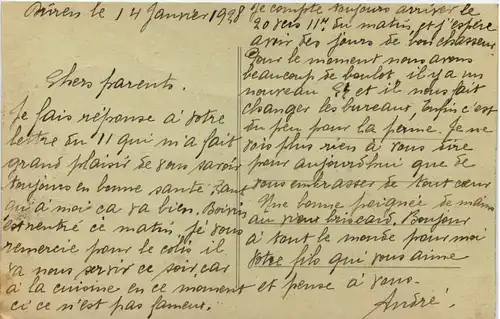 Düren le 14 Janvier 1928
Chers parents.
Je fais réponse à votre
lettre du 11 qui m'a fait
grand plaisir de vous savoir
toujours en bonne santé. Quant
qu'à moi ca va bien. Boivin
est rentré ce matin, je vous
remercie pour le colis il
va nous servir ce soir, car
à la cuisine en ce moment
ci ce n'est pas fameux.
Je compte toujours arriver le
20 vers 11h du matin, et j'espère
avoir des jours de bon chasseur.
Pour le moment nous avons
beaucoup de boulot il y a un
nouveau et il nous fait
changer les bureaux, enfin c'est
du peu pour la peine. Je ne
vois plus rien à vous dire
pour aujourd'hui que de
vous embrasser de tout cœur
Une bonne poignée de mains
au vieux briscard. Bonjour
à tout le monde pour moi
Votre fils qui vous aime
et pense à vous.
André.